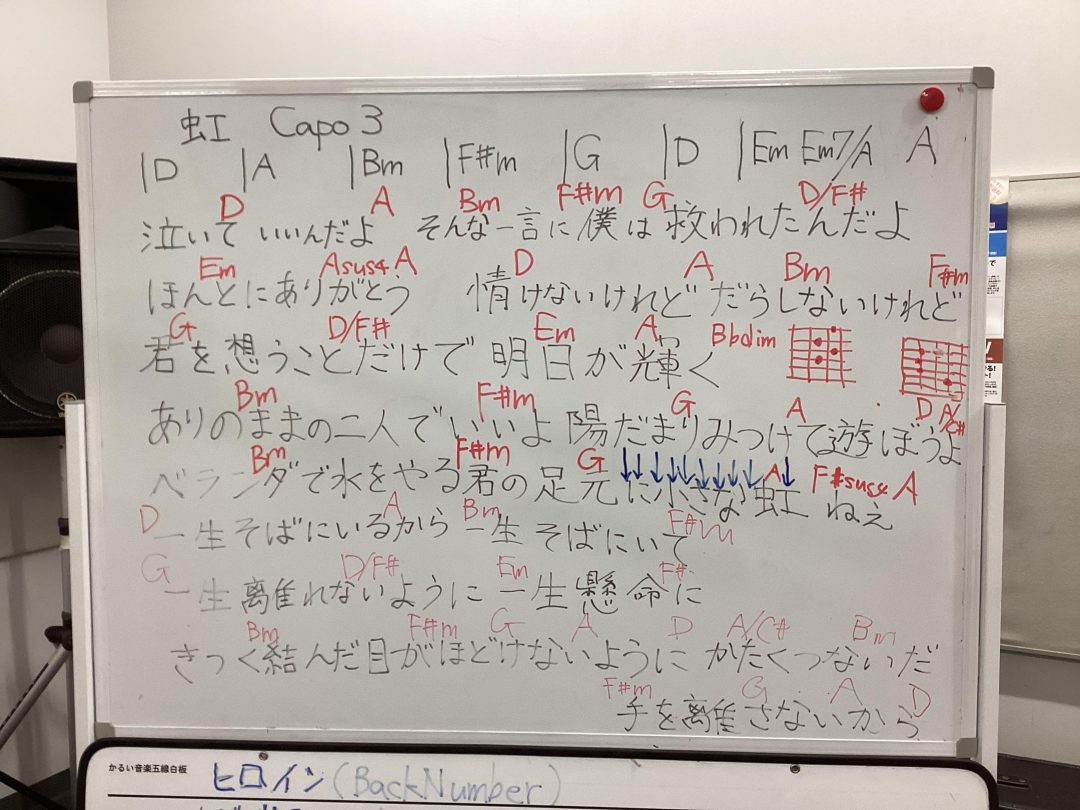 虹 Capo 3
|D |A |Bm |F#m |G |D |Em Em7/A A
D A Bm F#m G D/F#
泣いて いいんだよ そんな一言に 僕は 救われたんだよ
Em Asus4 A D A Bm F#m
ほんとにありがとう 情けないけれど だらしないけれど
G D/F# Em A Bbdim
君を想うことだけで 明日が輝く
Bm F#m G A D A/C#
ありのままの二人でいいよ 陽だまりみつけて遊ぼうよ
Bm F#m G ↓↓↓↓↓↓↓↓↓A↓ F#sus4 A
ベランダで水をやる君の足元に小さな虹 ねえ
D A Bm F#m
一生そばにいるから 一生そばにいて
G D/F# Em F#
一生離れないように 一生懸命に
Bm F#m G A D A/C# Bm
きつく結んだ目がほどけないように かたくつないだ
F#m G A D
手を離さないから
かるい音楽五線白板
ヒロイン(BackNumber)